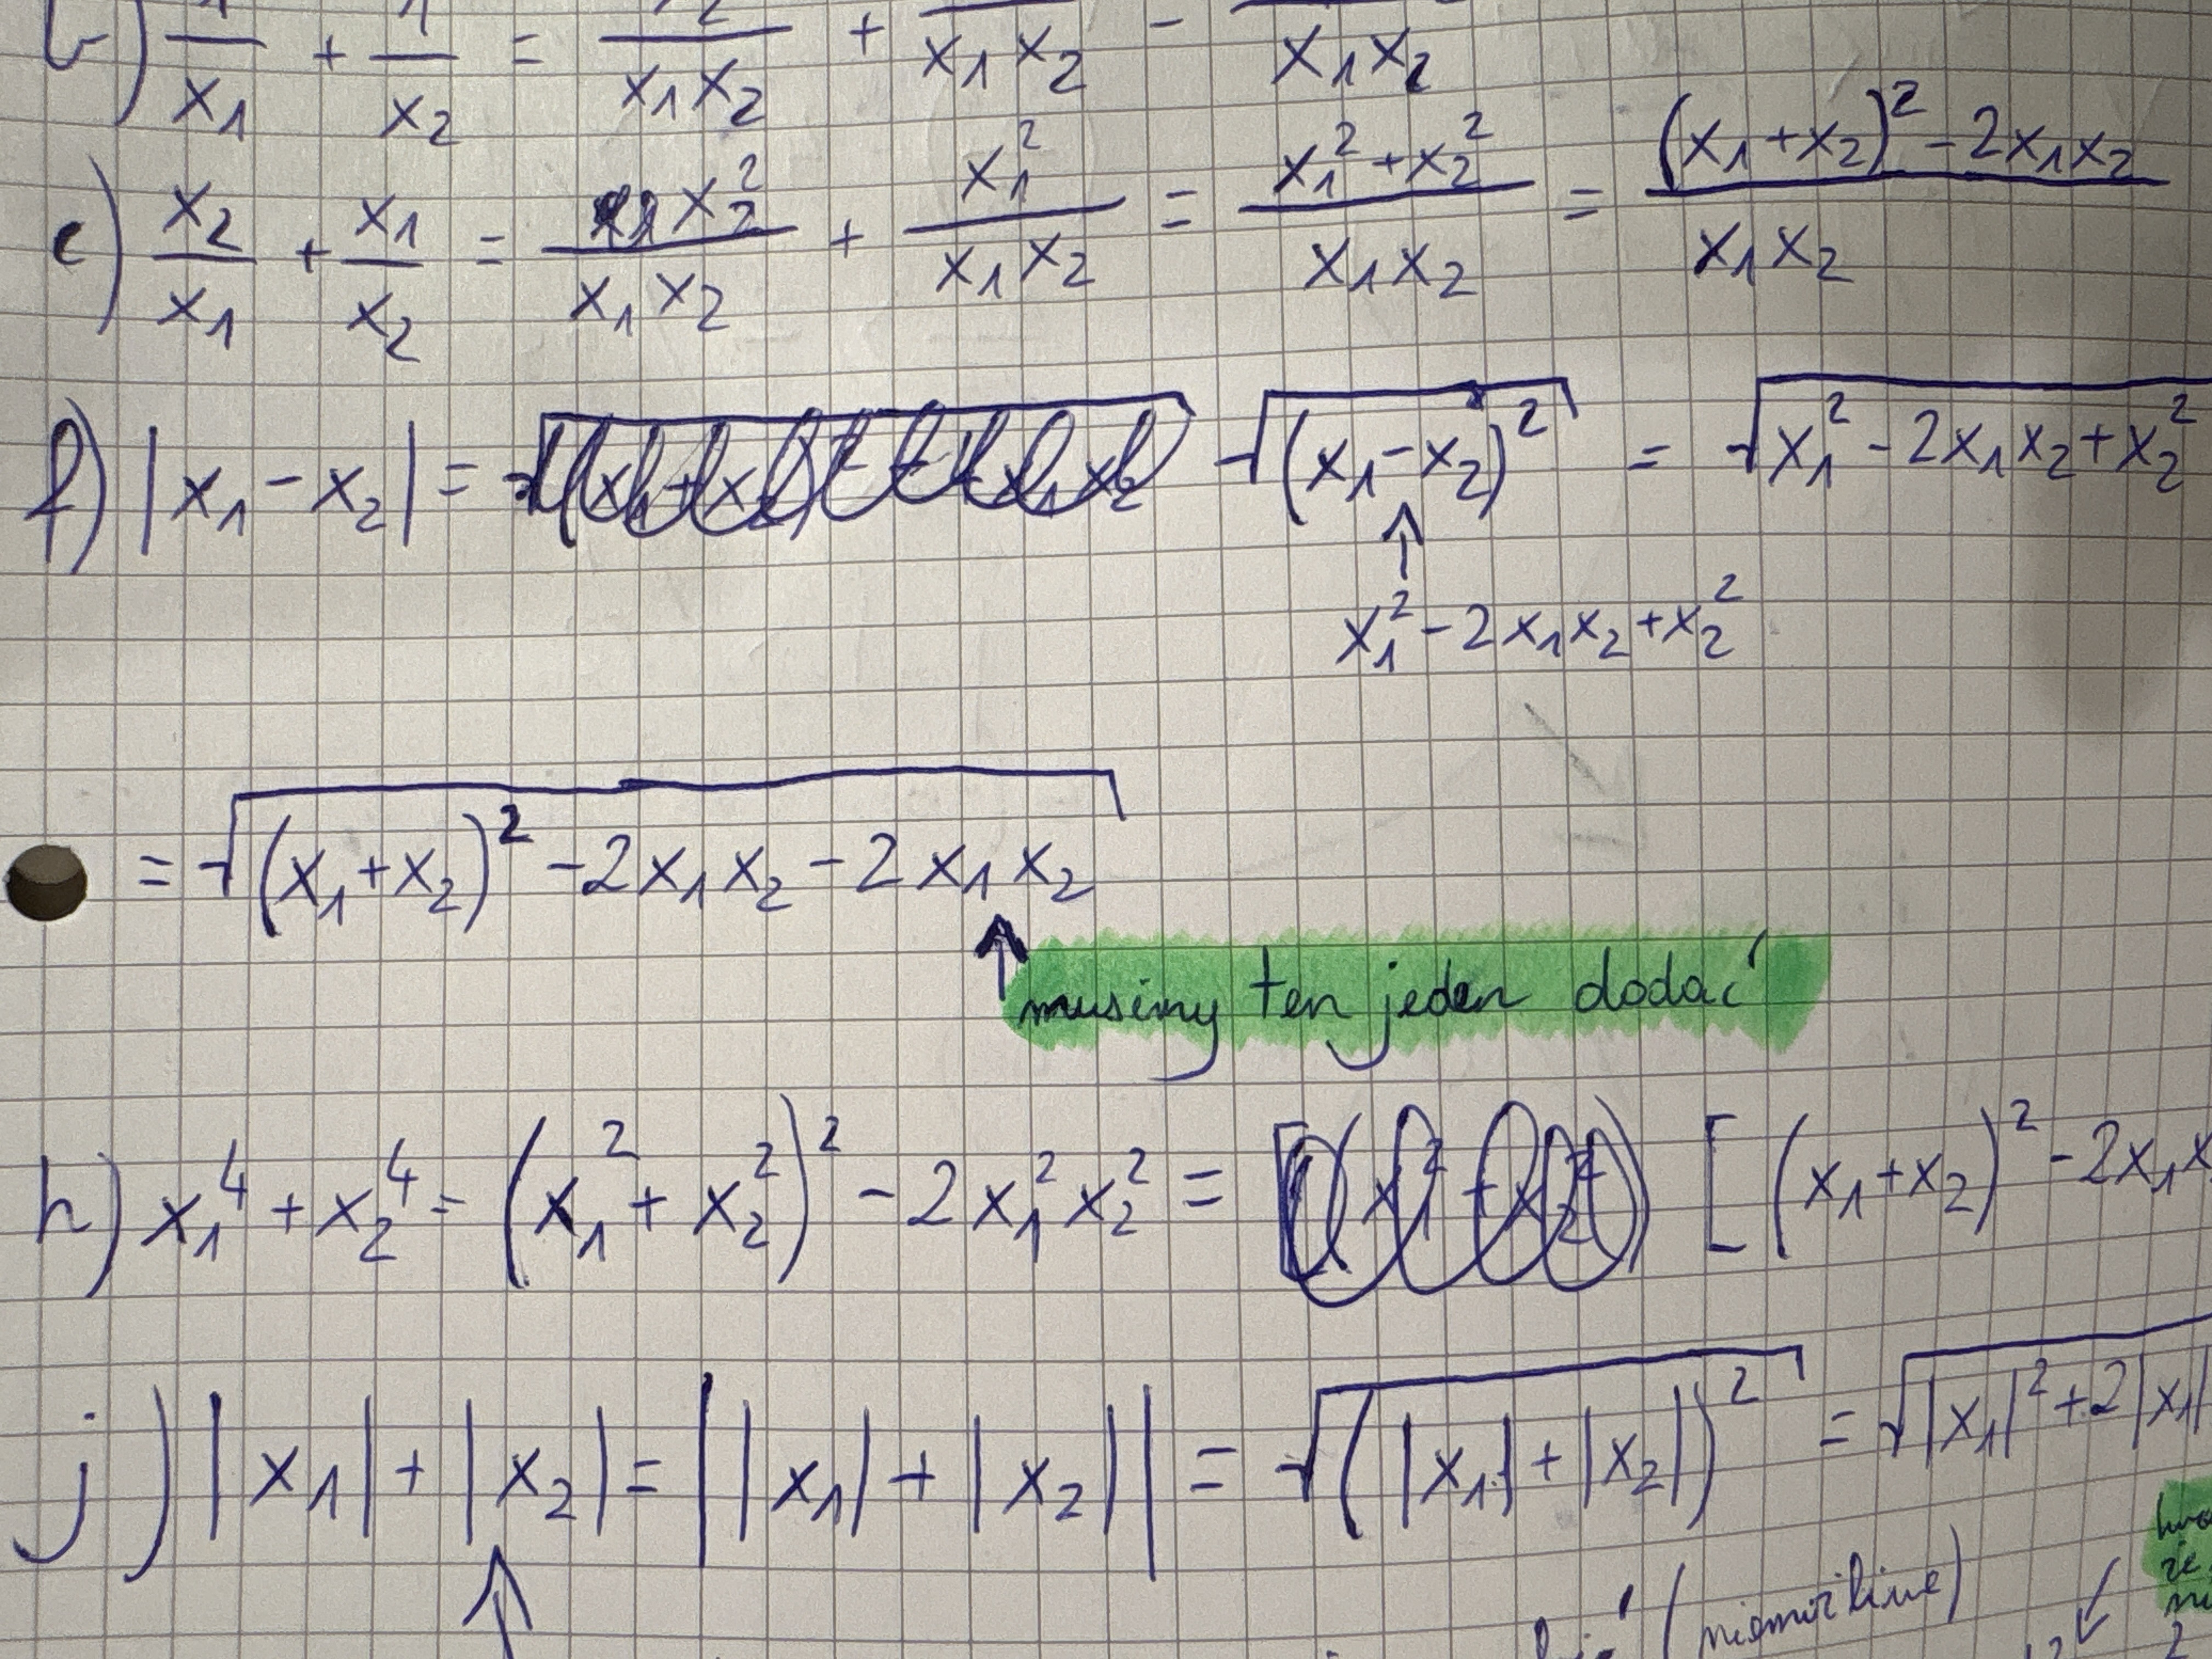 b) 1/x₁ + 1/x₂ = x₂/(x₁x₂) + /(x₁x₂) = /(x₁x₂)
e) x₂/x₁ + x₁/x₂ = x₂²/(x₁x₂) + x₁²/(x₁x₂) = (x₁² + x₂²)/(x₁x₂) = ((x₁+x₂)² - 2x₁x₂)/(x₁x₂)
f) |x₁ - x₂| = √((x₁-x₂)²) = √(x₁² - 2x₁x₂ + x₂²
↑
x₁² - 2x₁x₂ + x₂²
= √((x₁+x₂)² - 2x₁x₂ - 2x₁x₂)
↑ musimy ten jeden dodać
h) x₁⁴ + x₂⁴ = (x₁² + x₂²)² - 2x₁²x₂² = [(x₁+x₂)² - 2x₁x
j) |x₁| + |x₂| = ||x₁| + |x₂|| = √((|x₁| + |x₂|)²) = √(|x₁|² + 2|x₁|
↑